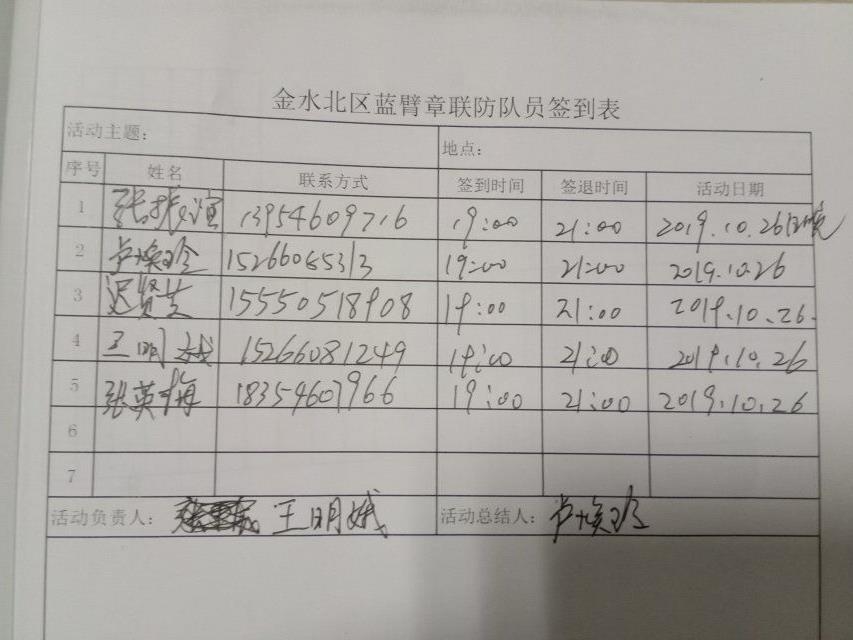 金水北区蓝臂章联防队员签到表
活动主题： 地点：
序号 姓名 联系方式 签到时间 签退时间 活动日期
1 张振谊 13954609716 19:00 21:00 2019.10.26
2 卢焕珍 15266065313 19:00 21:00 2019.10.26
3 迟贤芝 15550518908 19:00 21:00 2019.10.26.
4 王明娥 15266081249 19:00 21:00 2019.10.26
5 张英梅 18354607966 19:00 21:00 2019.10.26
6
7
活动负责人： 王明娥 活动总结人： 卢焕珍